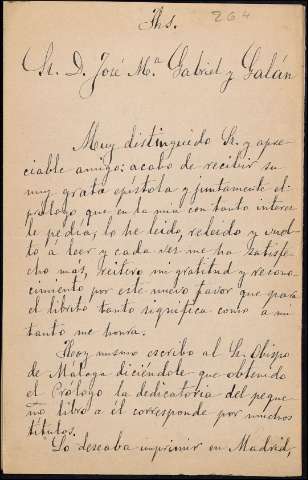 Jhs.
264
Sr. D. José M.ª Gabriel y Galán
Muy distinguido Sr. y apre-
ciable amigo: acabo de recibir su
muy grata epistola y juntamente el
prólogo que en la mia con tanto interes
le pedia; lo he leido, releido y vuel-
to á leer y cada vez me ha satisfe-
cho mas, reitero mi gratitud y recono-
cimiento por este nuevo favor que para
el librito tanto significa como a mi
tanto me honra.
Hoy mismo escribo al Sr. Obispo
de Málaga diciéndole que obtenido
el Prólogo la dedicatoria del peque-
ño libro a él corresponde por muchos
títulos.
Lo deseaba imprimir en Madrid,